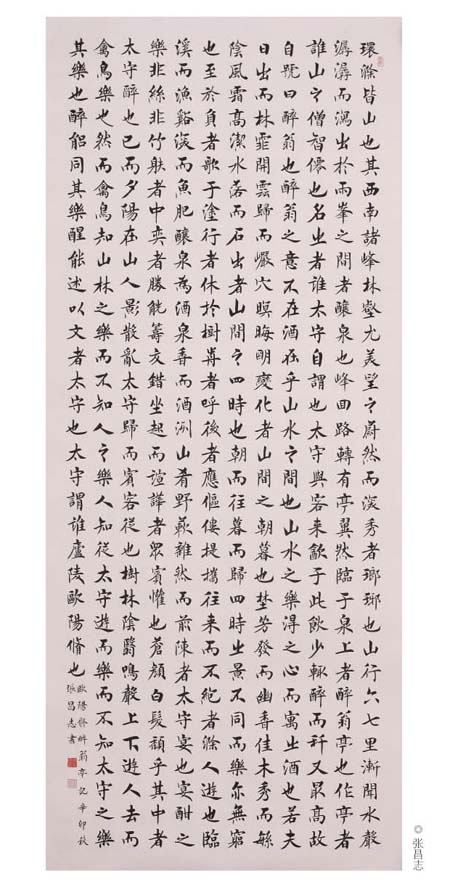 環滁皆山也其西南諸峰林壑尤美望之蔚然而深秀者瑯琊也山行六七里漸聞水聲
潺潺而瀉出於兩峯之間者釀泉也峰回路轉有亭翼然臨于泉上者醉翁亭也作亭者
誰山之僧智僊也名之者誰太守自謂也太守與客來飲于此飲少輒醉而年又最高故
自號曰醉翁也醉翁之意不在酒在乎山水之間也山水之樂得之心而寓之酒也若夫
日出而林霏開雲歸而巖穴暝晦明變化者山間之朝暮也埜芳發而幽香佳木秀而繁
陰風霜高潔水落而石出者山間之四時也朝而往暮而歸四時之景不同而樂亦無窮
也至於負者歌于塗行者休於樹前者呼後者應傴僂提攜往來而不絕者滁人遊也臨
溪而漁谿深而魚肥釀泉為酒泉香而酒洌山肴野蔌雜然而前陳者太守宴也宴酣之
樂非絲非竹射者中奕者勝觥籌交錯坐起而諠譁者眾賓懽也蒼顏白髮頹乎其中者
太守醉也已而夕陽在山人影散亂太守歸而賓客從也樹林陰翳鳴聲上下遊人去而
禽鳥樂也然而禽鳥知山林之樂而不知人之樂人知從太守遊而樂而不知太守之樂
其樂也醉能同其樂醒能述以文者太守也太守謂誰廬陵歐陽脩也
歐陽脩醉翁亭記辛卯秋
張昌志書
◎ 张昌志